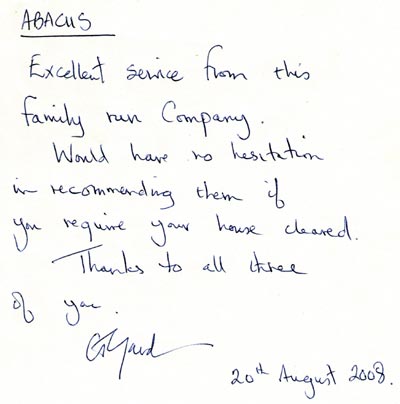 ABACUS
Excellent service from this
family run Company.
Would have no hesitation
in recommending them if
you require your house cleared.
Thanks to all three
of you.
20th August 2008.